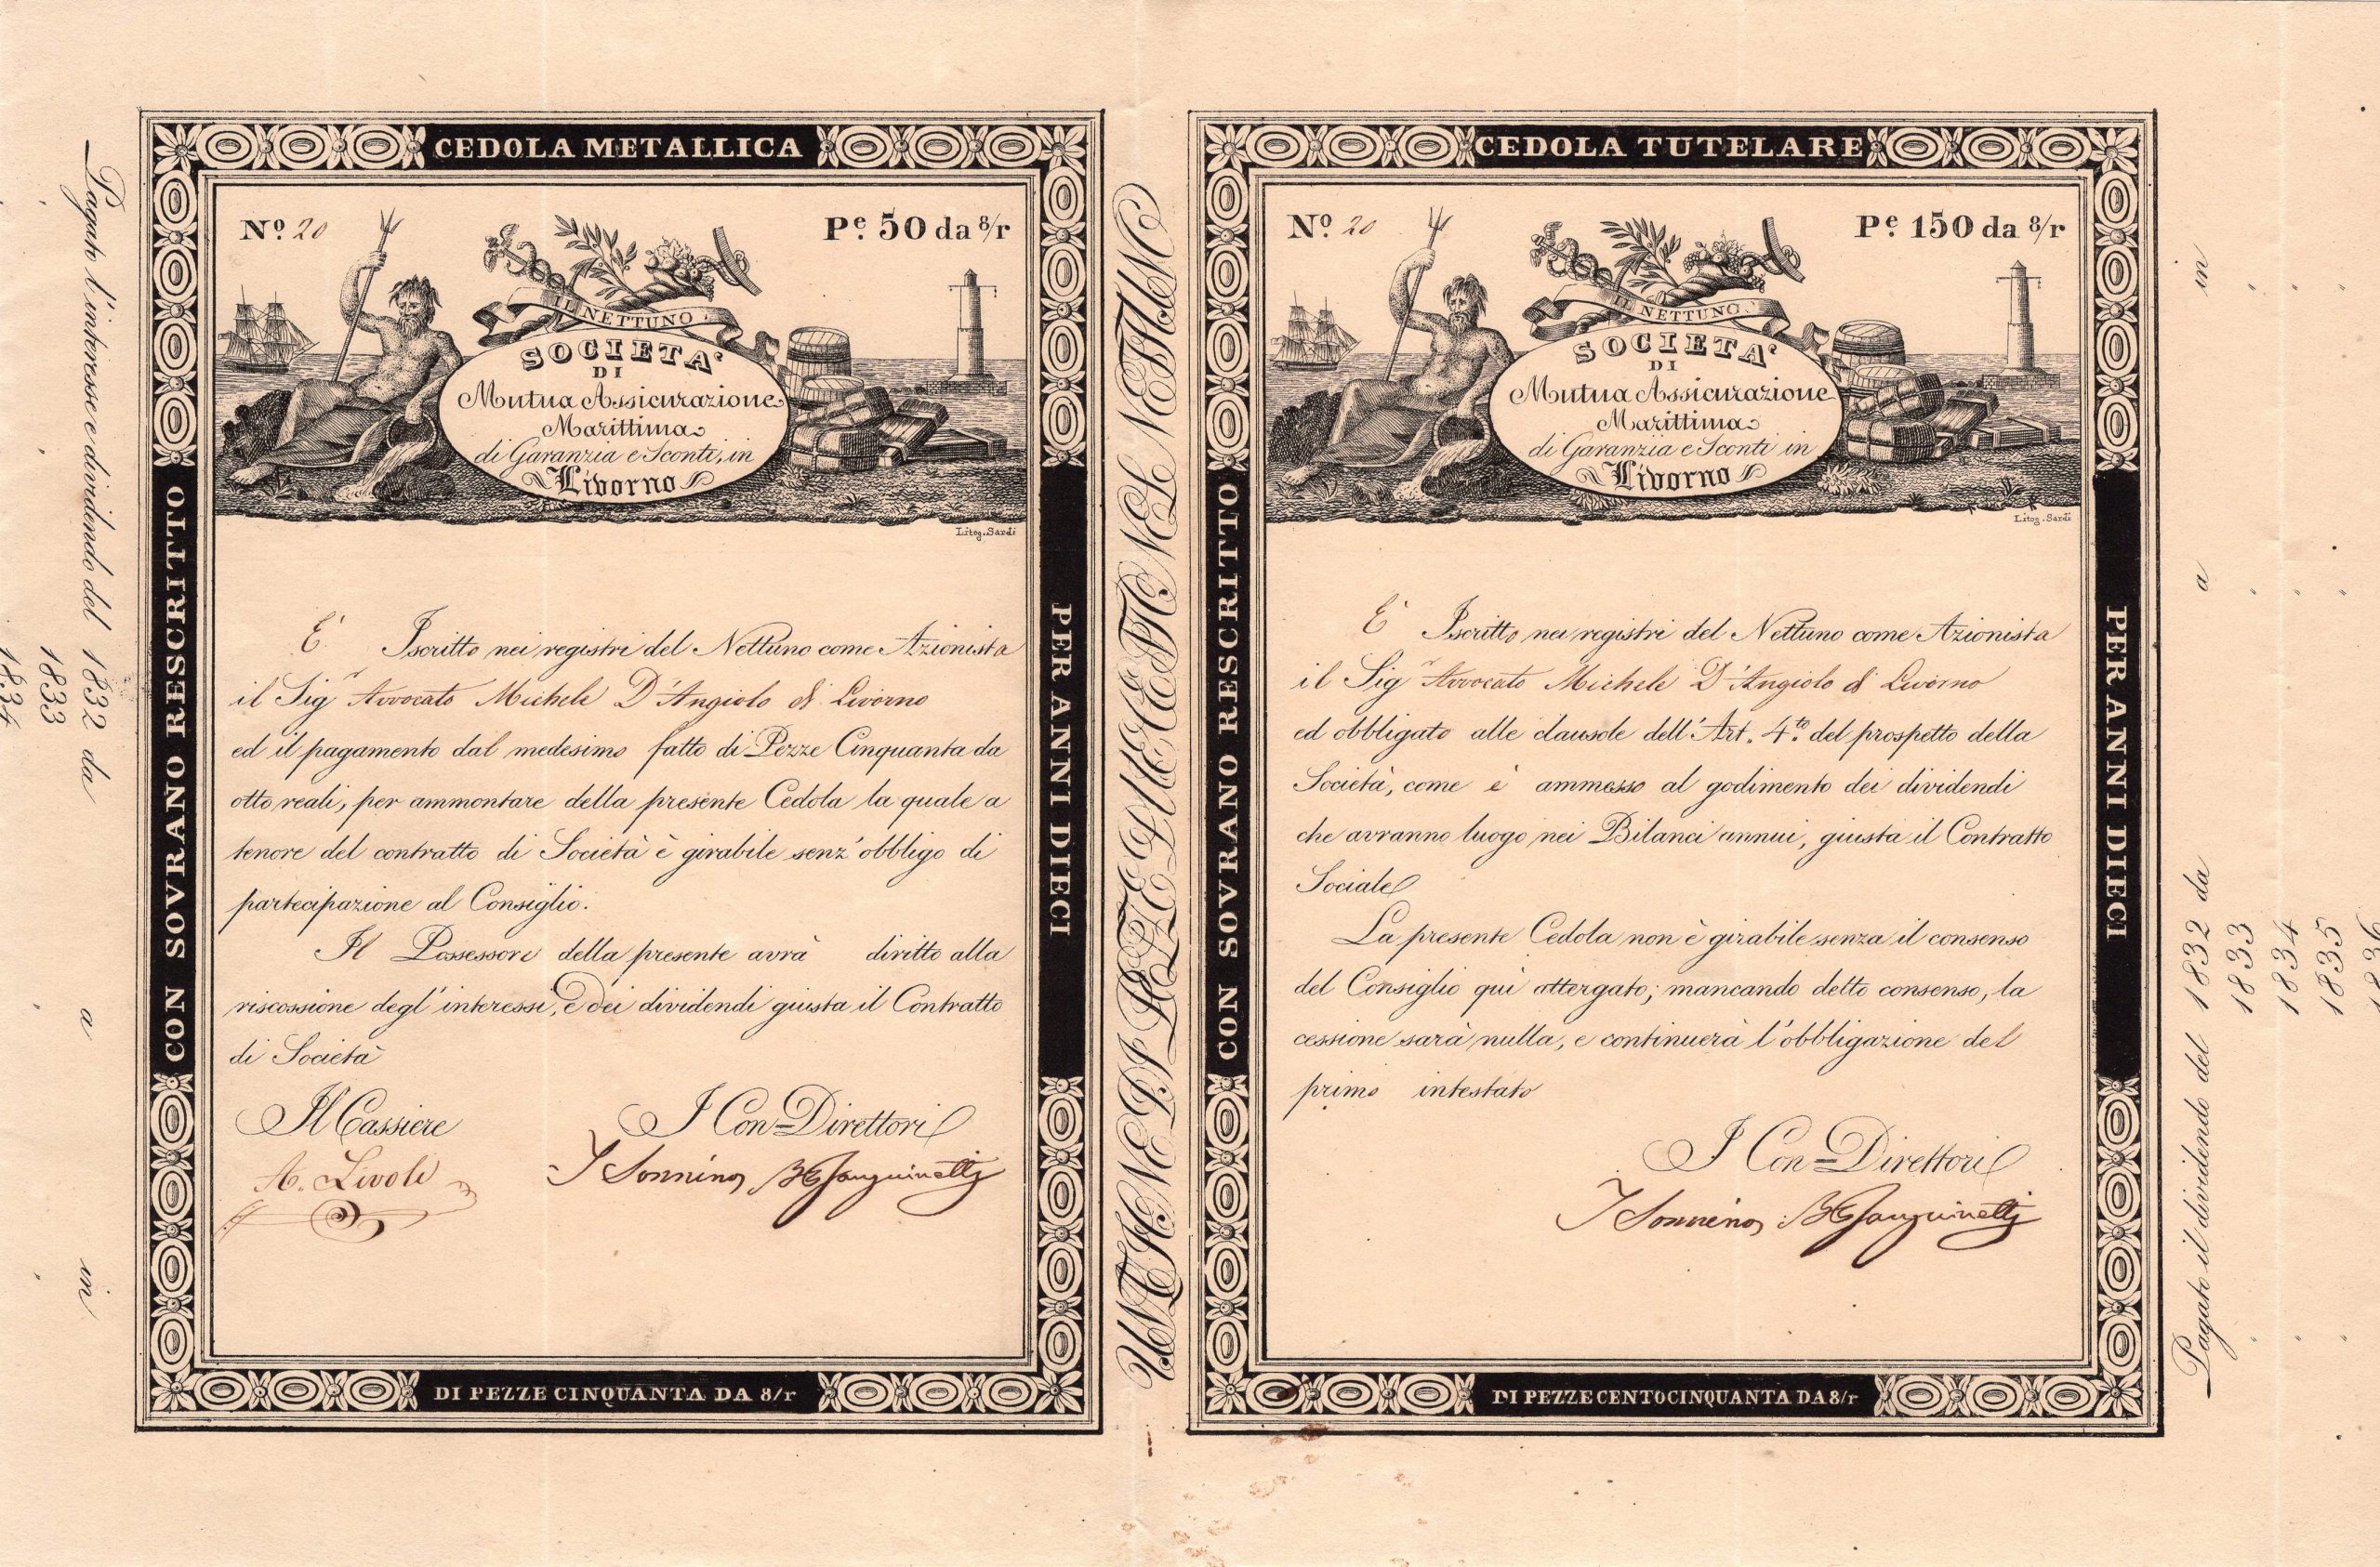 CEDOLA METALLICA
Nº 20
Pe. 50 da 8/r
IL NETTUNO
SOCIETA'
DI
Mutua Assicurazione
Marittima
di Garanzia e Sconti, in
Livorno
Litog. Sardi
CON SOVRANO RESCRITTO
PER ANNI DIECI
E' Iscritto nei registri del Nettuno come Azionista
il Sigr Avvocato Michele D'Angiolo di Livorno
ed il pagamento dal medesimo fatto di Pezze Cinquanta da
otto reali, per ammontare della presente Cedola la quale a
tenore del contratto di Società è girabile senz'obbligo di
partecipazione al Consiglio.
Il Possessore della presente avrà diritto alla
riscossione degl'interessi, e dei dividendi giusta il Contratto
di Società
Il Cassiere
I Con=Direttori
A. Livoli
Sonnino
Sanguinetti
DI PEZZE CINQUANTA DA 8/r
Pagato l'interesse e dividendo del 1832 da a in
1833
1834
CEDOLA TUTELARE
Nº 20
Pe. 150 da 8/r
IL NETTUNO
SOCIETA'
DI
Mutua Assicurazione
Marittima
di Garanzia e Sconti in
Livorno
Litog. Sardi
CON SOVRANO RESCRITTO
PER ANNI DIECI
E' Iscritto nei registri del Nettuno come Azionista
il Sigr Avvocato Michele D'Angiolo di Livorno
ed obbligato alle clausole dell'Art. 4to. del prospetto della
Società, come è ammesso al godimento dei dividendi
che avranno luogo nei Bilanci annui, giusta il Contratto
Sociale
La presente Cedola non è girabile senza il consenso
del Consiglio quì attergato; mancando detto consenso, la
cessione sarà nulla, e continuerà l'obbligazione del
primo intestato
I Con=Direttori
Sonnino
Sanguinetti
DI PEZZE CENTOCINQUANTA DA 8/r
Pagato il dividendo del 1832 da a in
1833
1834
1835
1836